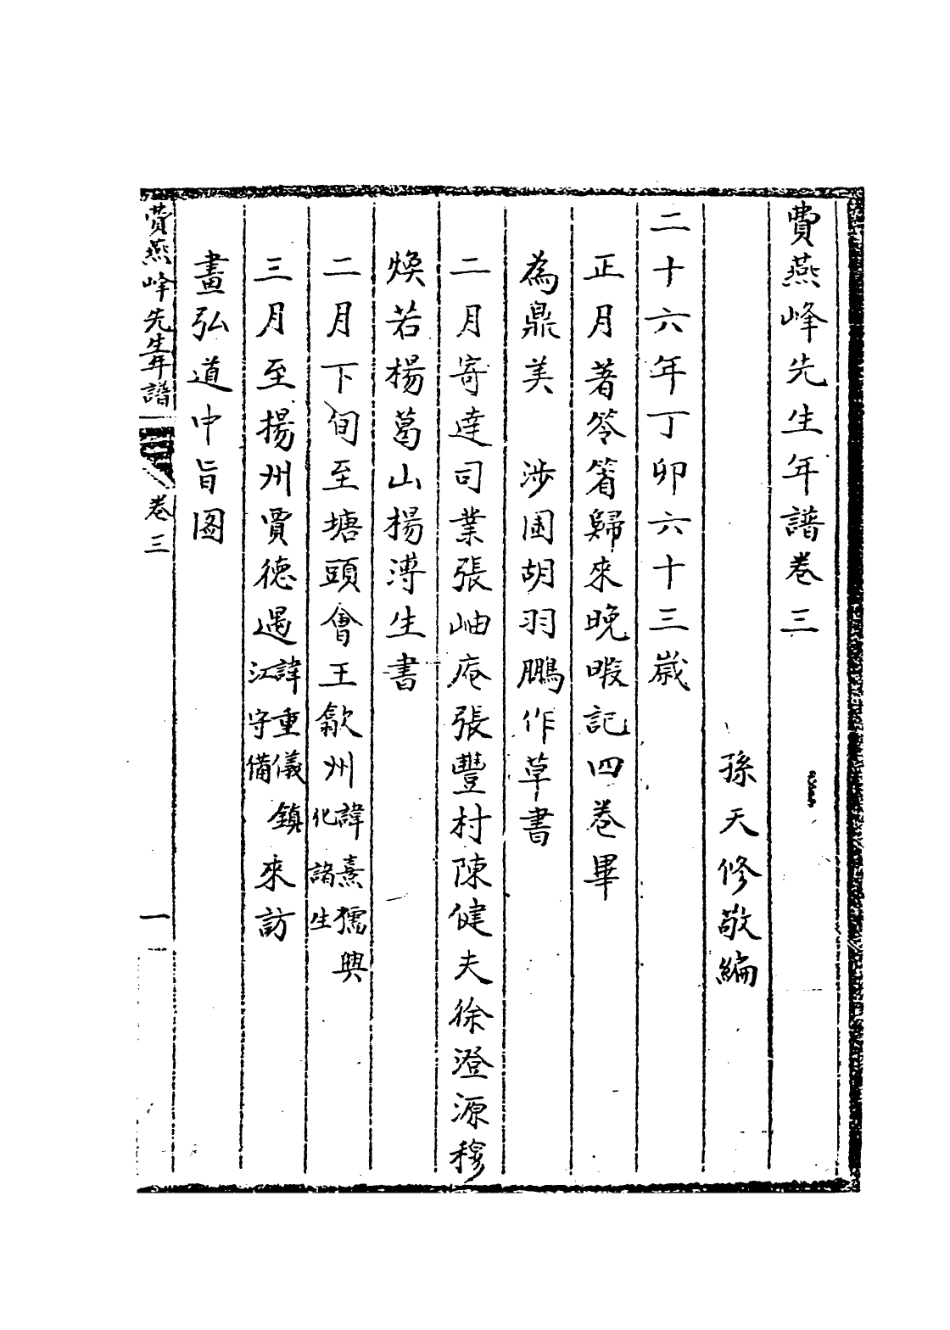 費燕峰先生年譜卷三
孫天修敬編
二十六年丁卯六十三歲
正月著笭箵歸來晚暇記四卷畢
為鼎美 涉園胡羽鵬作草書
二月寄達司業張岫庵張豐村陳健夫徐澄源穆
煥若楊葛山楊溥生書
二月下旬至塘頭會王歙州諱熹獳興
化諸生
三月至揚州賈德遇諱重儀鎮
江守備來訪
畫弘道中旨圖
費燕峰先生年譜 卷三 一